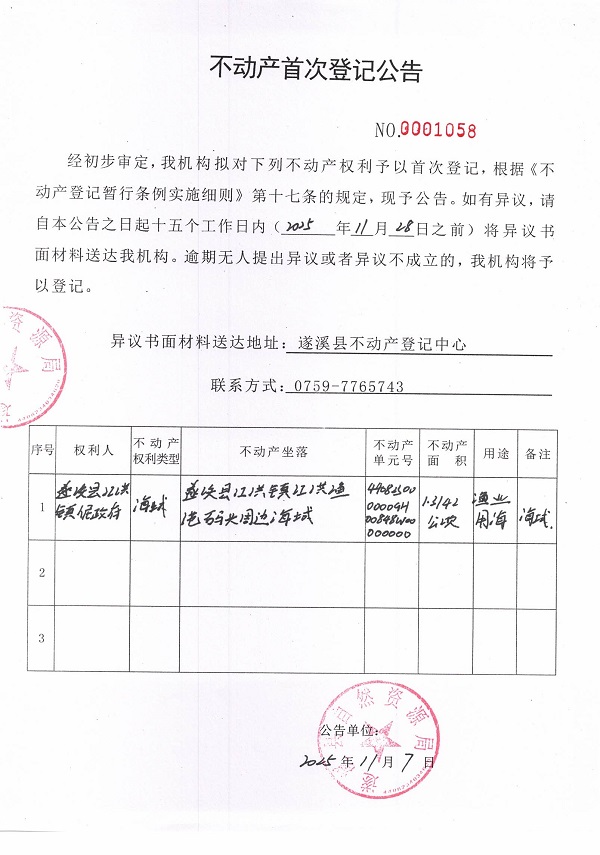 不动产首次登记公告
NO.0001058
经初步审定,我机构拟对下列不动产权利予以首次登记,根据《不
动产登记暂行条例实施细则》第十七条的规定,现予公告。如有异议,请
自本公告之日起十五个工作日内(2025年11月28日之前)将异议书
面材料送达我机构。逾期无人提出异议或者异议不成立的,我机构将予
以登记。
异议书面材料送达地址:遂溪县不动产登记中心
联系方式:0759-7765743
序号 权利人 不动产权利类型 不动产坐落 不动产单元号 不动产面积 用途 备注
1 遂溪县江洪镇人民政府 海域 遂溪县江洪镇江洪渔港码头周边海域 1.3142公顷 渔业用海 海域.
2
3
公告单位:
2025年11月7日
遂溪县自然资源局